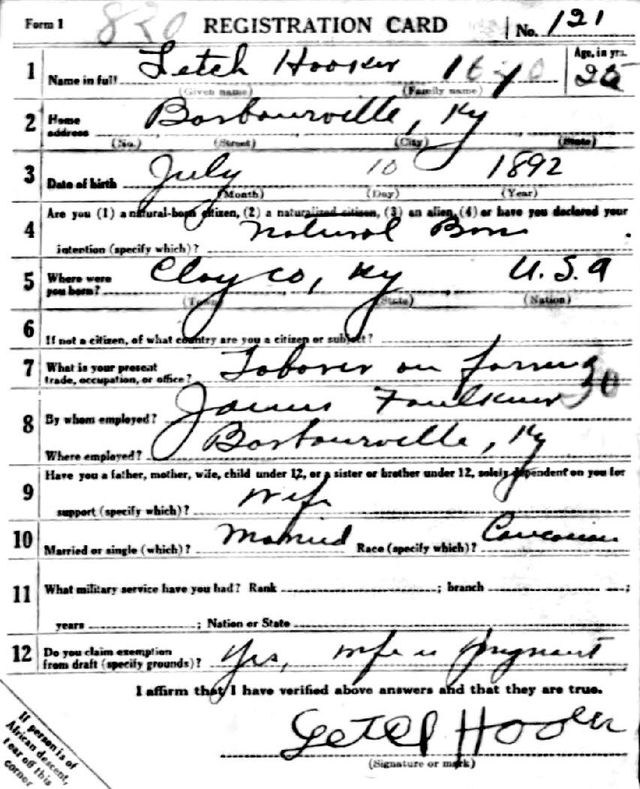 Form 1 830 REGISTRATION CARD No. 121
1 Name in full Letch Hooker Age, in yrs. 25
(Given name) (Family name)
2 Home address Barbourville, Ky
(No.) (Street) (City) (State)
3 Date of birth July 10 1892
(Month) (Day) (Year)
4 Are you (1) a natural-born citizen, (2) a naturalized citizen, (3) an alien, (4) or have you declared your
intention (specify which)? Natural Born
5 Where were you born? Clay co, Ky U.S.A
(Town) (State) (Nation)
6 If not a citizen, of what country are you a citizen or subject?
7 What is your present trade, occupation, or office? Laborer on farm
8 By whom employed? James Faulkner 30
Where employed? Barbourville, Ky
9 Have you a father, mother, wife, child under 12, or a sister or brother under 12, solely dependent on you for
support (specify which)? Wife
10 Married or single (which)? Married Race (specify which)? Caucasian
11 What military service have you had? Rank ; branch ;
years ; Nation or State
12 Do you claim exemption from draft (specify grounds)? Yes, Wife is pregnant
I affirm that I have verified above answers and that they are true.
Letch Hooker
(Signature or mark)
If person is of
African descent,
tear off this
corner